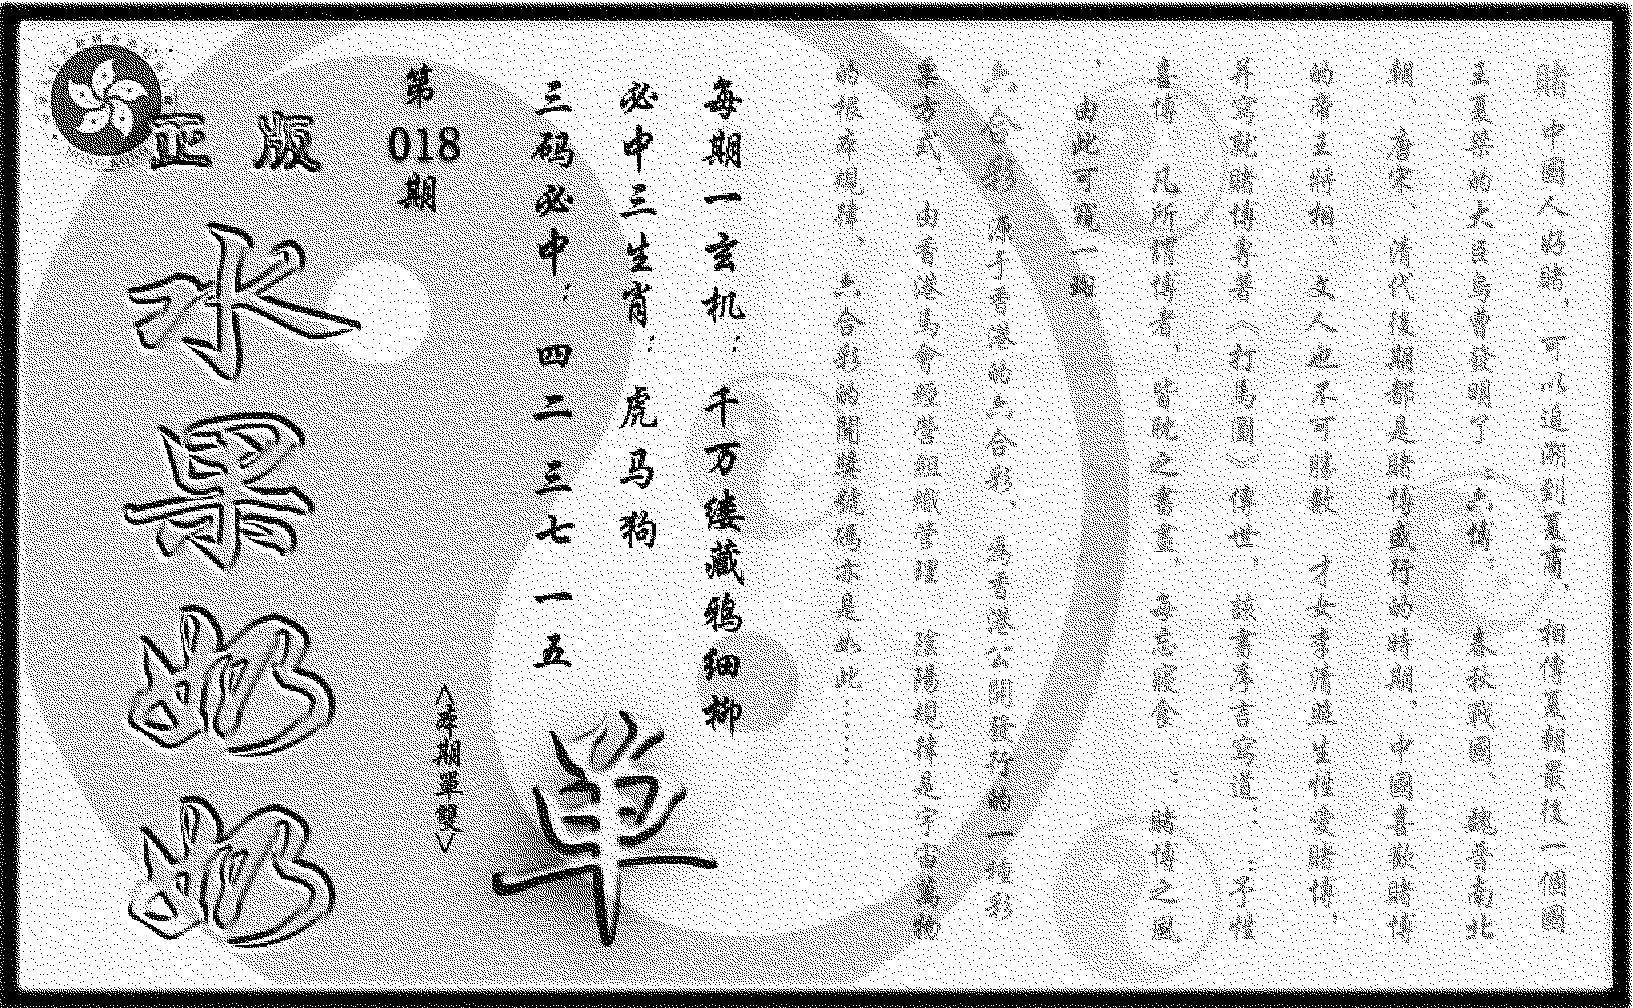 賭中國人好賭，可以追溯到夏商，相傳夏朝最後一個國
王夏桀的大臣烏曹發明了：六博。春秋戰國、魏晉南北
朝、唐宋、清代後期都是賭博盛行的時期。中國喜歡賭博
的帝王將相、文人也不可勝數。才女李清照生性愛賭博，
并寫就賭博專著〈打馬圖〉傳世，該書序言寫道：：予性
喜博，凡所謂博者，皆耽之，每忘寢食：賭博之風
，由此可窺一斑
六合彩，源于香港的六合彩，為香港公開發行的一種彩
票方式，由香港馬會經營組織管理 陰陽規律是宇宙萬物
的根本規律，六合彩的開獎號碼亦是如此……
每期一玄机：千万缕藏鸦细柳
必中三生肖：虎马狗
三码必中：四二三七一五
单
〈本期單雙〉
第018期
正版
水果奶奶